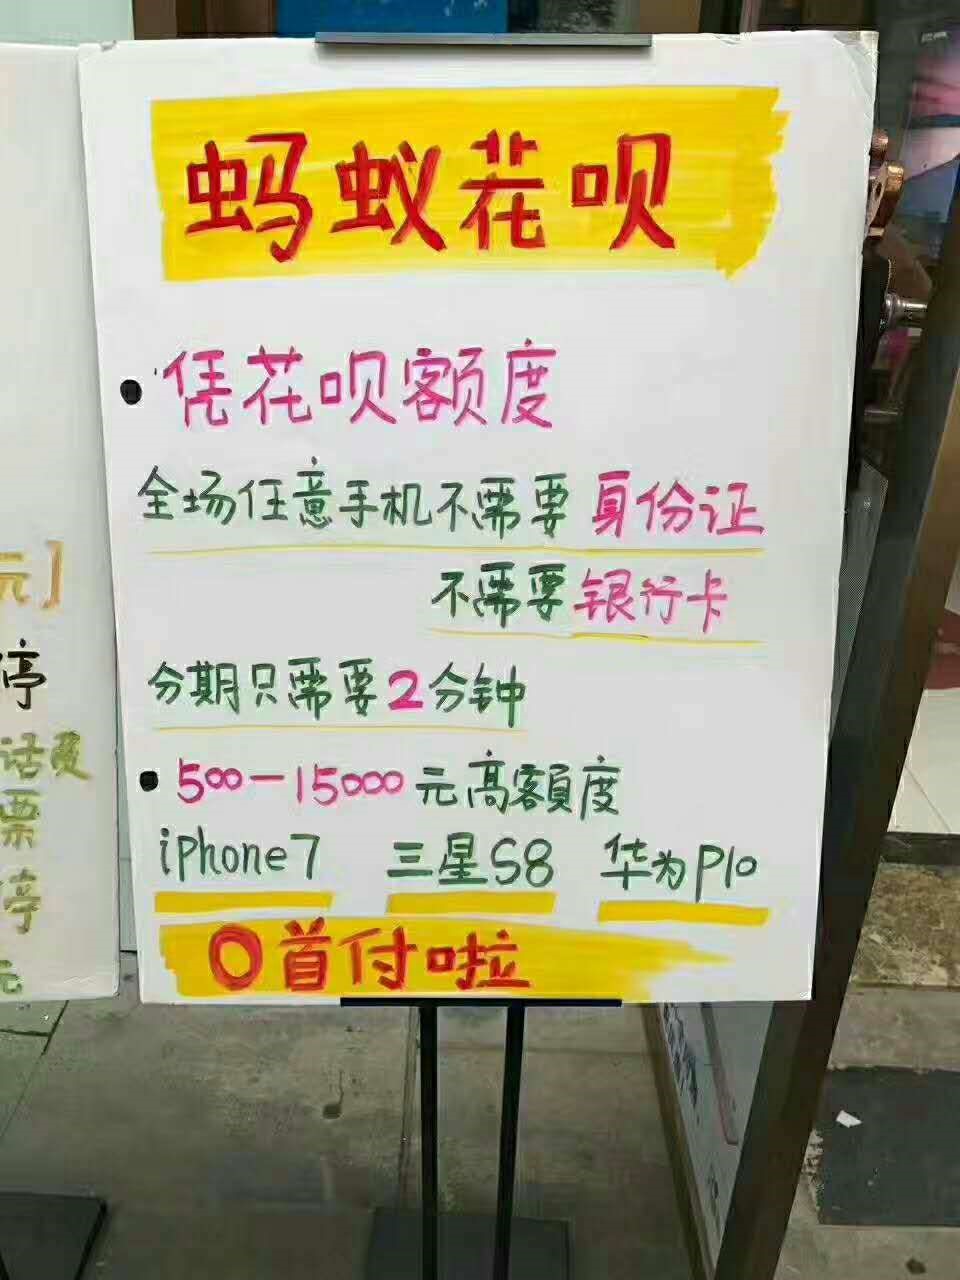 蚂蚁花呗
凭花呗额度
全场任意手机不需要身份证
不需要银行卡
分期只需要2分钟
500-15000元高額度
iphone7 三星S8 华为P10
0首付啦
元】
停
话费
票
停
元